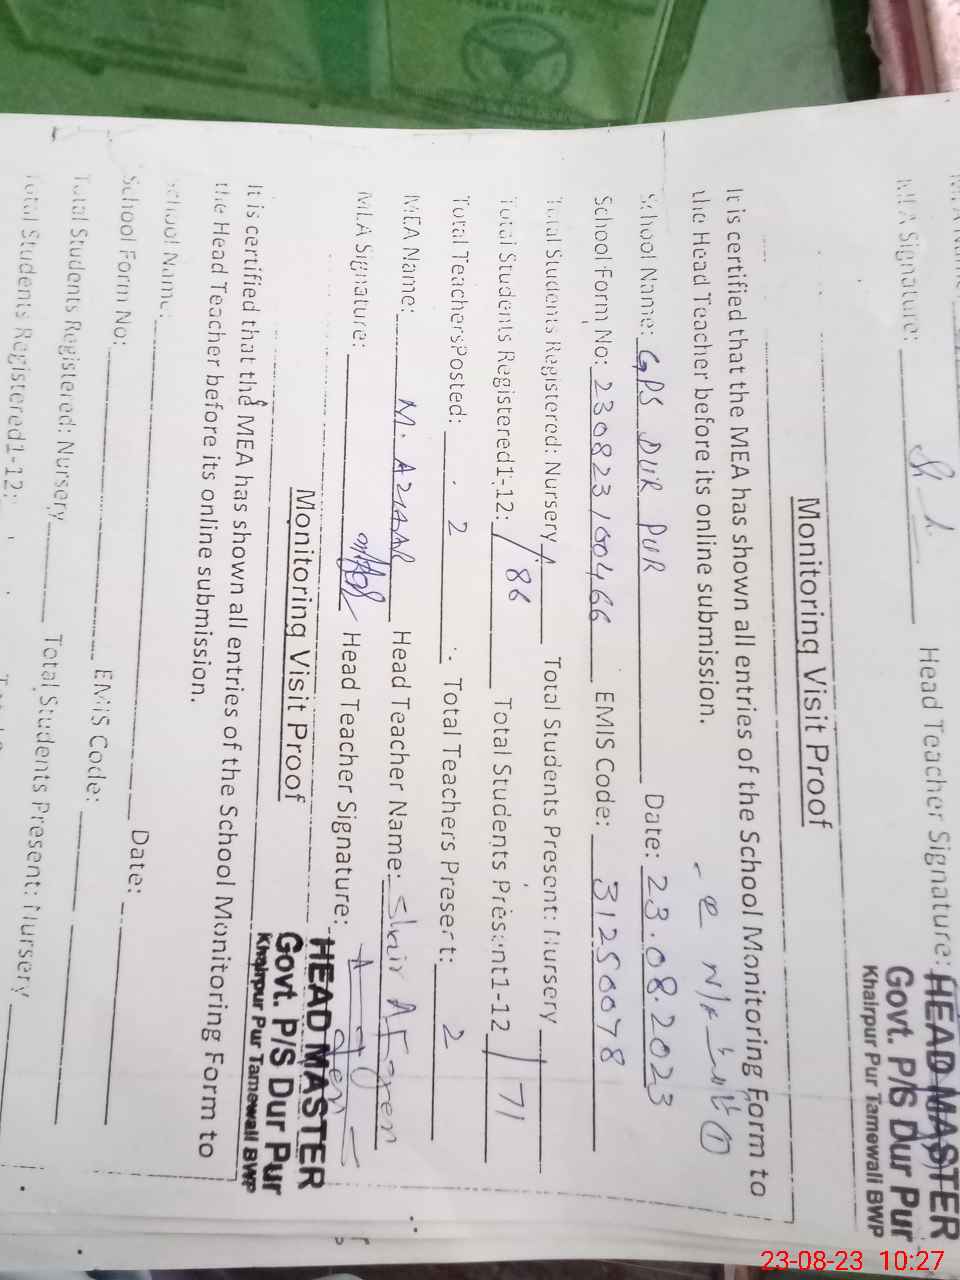 MEA Signature: Head Teacher Signature:
HEAD MASTER
Govt. P/S Dur Pur
Khairpur Pur Tamewali BWP
Monitoring Visit Proof
It is certified that the MEA has shown all entries of the School Monitoring Form to
the Head Teacher before its online submission.
School Name: GPS DUR PUR Date: 23.08.2023
School Form No: 230823100466 EMIS Code: 31250078
Total Students Registered: Nursery Total Students Present: Nursery
Total Students Registered1-12: 86 Total Students Present1-12 71
Total TeachersPosted: 2 Total Teachers Present: 2
MEA Name: M. AZHAR Head Teacher Name: Shair Afgen
MEA Signature: Head Teacher Signature:
HEAD MASTER
Govt. P/S Dur Pur
Khairpur Pur Tamewali BWP
Monitoring Visit Proof
It is certified that the MEA has shown all entries of the School Monitoring Form to
the Head Teacher before its online submission.
School Name: Date:
School Form No: EMIS Code:
Total Students Registered: Nursery Total Students Present: Nursery
Total Students Registered1-12:
23-08-23 10:27